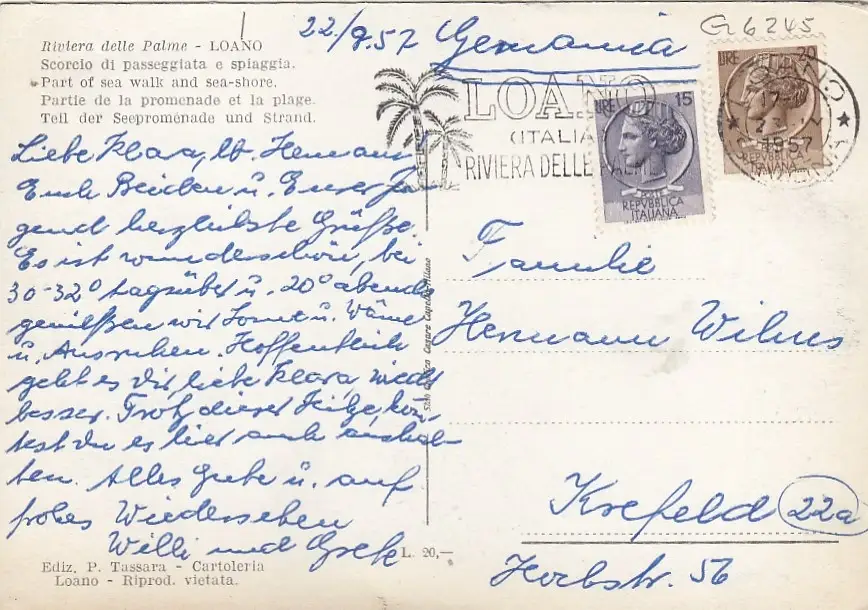 G 6245
22/8.57 Germania
Riviera delle Palme - LOANO
Scorcio di passeggiata e spiaggia.
Part of sea walk and sea-shore.
Partie de la promenade et la plage.
Teil der Seepromenade und Strand.
LOANO
(ITALIA
RIVIERA DELLE PALME
LIRE 15
POSTE
REPVBBLICA
ITALIANA
LIRE 20
REPVBBLICA
ITALIANA
LOANO
17
23
1957
Liebe Klara, lb. Hermann
Euch Beiden u. Eurer Ju-
gend herzlichste Grüße.
Es ist wunderschön, bei
30-32° tagsüber u. 20° abends
genießen wir Sonne u. Wärme
u. Ausruhen. Hoffentlich
geht es Dir, liebe Klara, wieder
besser. Trotz dieser Hitze, könn-
test Du es hier auch aushal-
ten. Alles Gute u. auf
frohes Wiedersehen
Willi und Grete
Familie
Hermann Wilms
Krefeld 22a
Horbstr. 56
Cesare Capello Milano
L. 20,—
Ediz. P. Tassara - Cartoleria
Loano - Riprod. vietata.